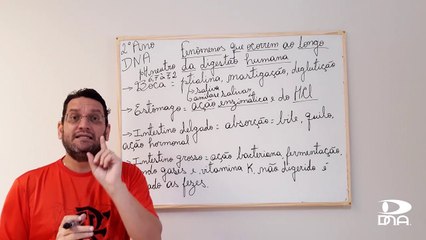 2º Ano
Fenômenos que ocorrem ao longo
DNA
da digestão humana
pH neutro
6,9 a 7,2
→ Boca = ptialina, mastigação, deglutição
→ saliva
→ amilase salivar
→ Estômago = ação enzimática e do HCl
→ Intestino delgado = absorção = bile, quilo,
ação hormonal
→ Intestino grosso = ação bacteriana, fermentação,
gases e vitamina K, não digerido é
as fezes.
DNA